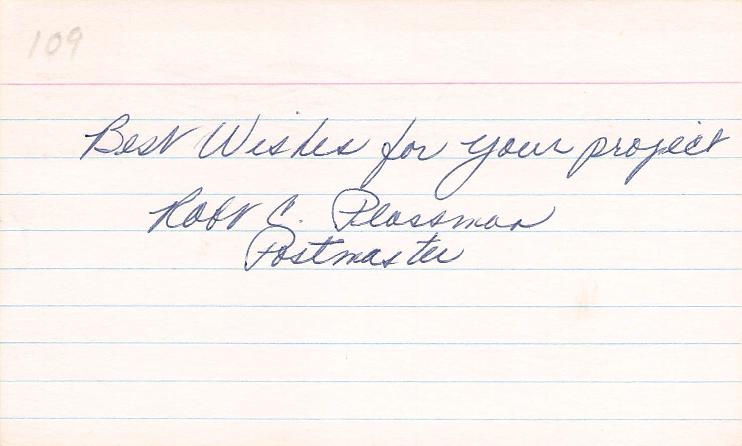 109
Best Wishes for your project
Robt C. Plossman
Postmaster